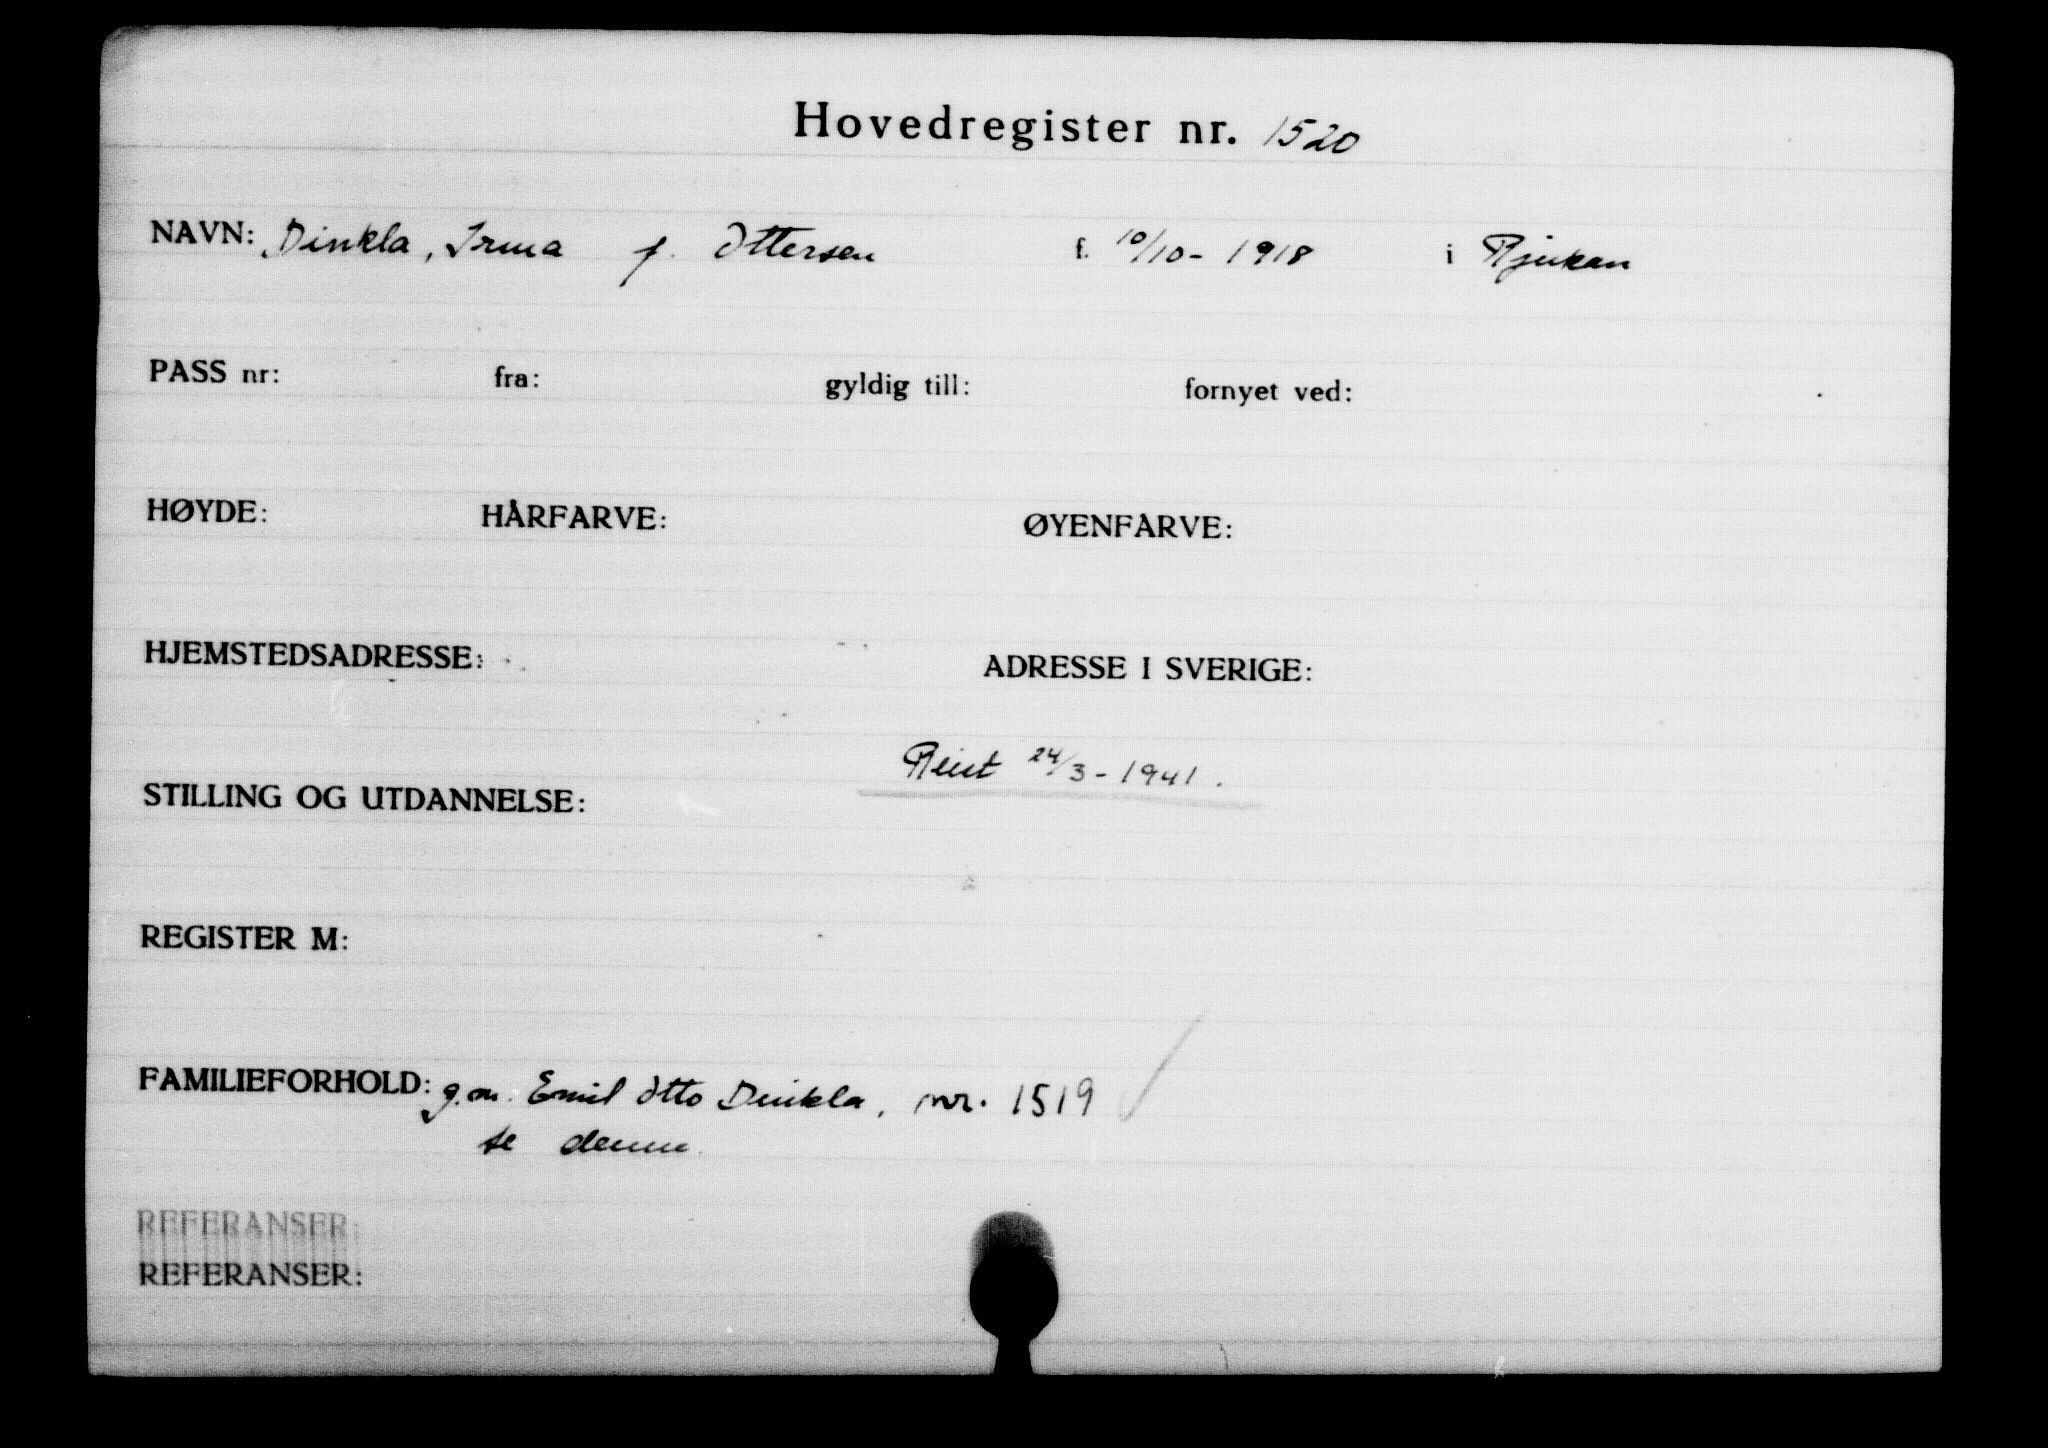 Hovedregister nr. 1520
NAVN: Dinkla, Irma f. Ottersen f. 10/10 - 1918 i Rjukan
PASS nr: fra: gyldig till: fornyet ved:
HØYDE: HÅRFARVE: ØYENFARVE:
HJEMSTEDSADRESSE: ADRESSE I SVERIGE:
Reist 24/3 - 1941.
STILLING OG UTDANNELSE:
REGISTER M:
FAMILIEFORHOLD: g.m. Emil Otto Dinkla, nr. 1519
se denne.
REFERANSER:
REFERANSER: